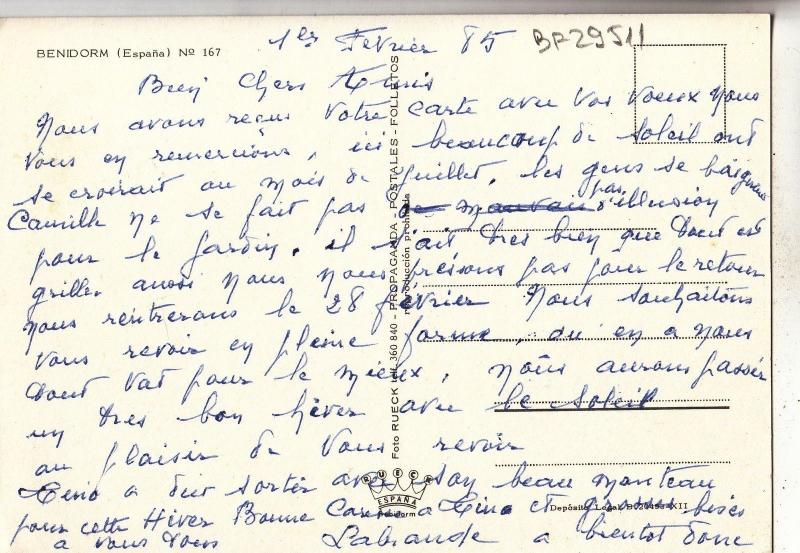 BENIDORM (España) Nº 167
1er Fevrier 85
BP29511
Bien Chers Amis
Nous avons reçus Votre carte avec vos voeux nous
vous en remercions, ici beaucoup de soleil ont
se croirait au mois de Juillet. les gens se baignent
Camille ne se fait pas pas d'illusion
pour le jardin, il sait tres bien que tout est
griller aussi nous nous pressons pas pour le retour
nous rentrerons le 28 février Nous souhaitons
vous revoir en pleine forme, ou en a nous
tout vat pour le mieux, nous aurons passer
un tres bon hiver avec le soleil
au plaisir de vous revoir
a dut sortir avec son beau manteau
pour cette Hiver Bonne a et bises
a vous tous a bientot donc
Foto RUECK Telf. 360 840 - PROPAGANDA - POSTALES - FOLLETOS
reproducción prohibida
RUECK
ESPAÑA
Benidorm
Depósito Legal